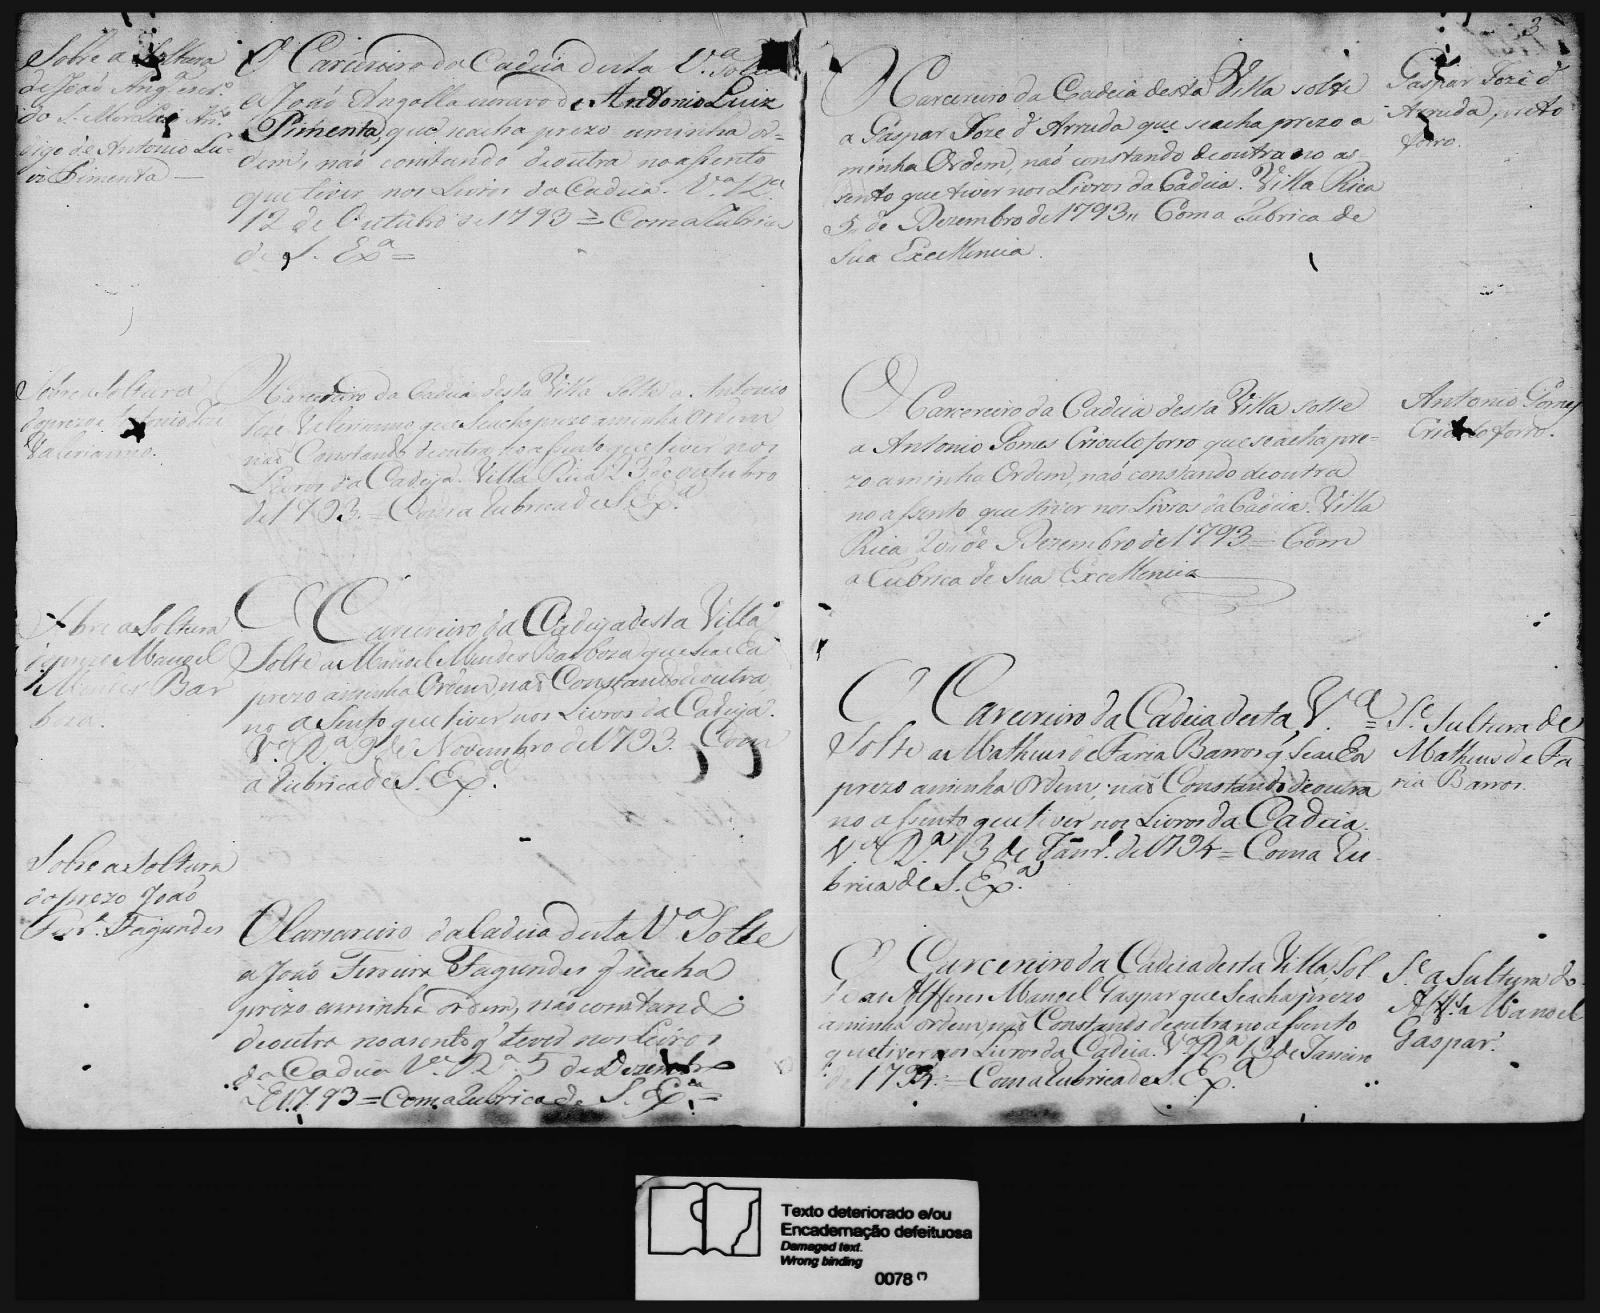 Sobre a Soltura
de João Ang.ª escr.º
digo de Antonio Lu-
iz Pimenta —
O Carcereiro da Cadeia desta V.ª Solte
a João Angolla escravo de Antonio Luiz
Pimenta, que se acha prezo a minha or=
dem, não constando de outra no assento
que tiver nos Livros da Cadeia. V.ª R.ca
12 de Outubro de 1793 = Com a Rubrica
de S. Ex.ª =
Sobre a Soltura
do prezo Antonio Joze
Valerianno.
O Carcereiro da Cadeia desta Villa solte a Antonio
Joze Valerianno, que se acha prezo a minha Ordem
não Constando de outra no assento que tiver nos
Livros da Cadeya. Villa Rica 23 de outubro
de 1793. = Com a Rubrica de S. Ex.ª
Sobre a Soltura
do prezo Manoel
Mendes Bar
boza.
O Carcereiro da Cadeya desta Villa
Solte a Manoel Mendes Barboza que se acha
prezo a minha Ordem, não Constando de outra
no assento que tiver nos Livros da Cadeya.
V.ª R.ª 9 de Novembro de 1793. Com
a Rubrica de S. Ex.ª
Sobre a Soltura
do prezo João
Fer.ª Fagundes
O Carcereiro da Cadeia desta V.ª Solte
a João Ferreira Fagundes q' se acha
prezo a minha ordem, não constand.º
de outra no asento q' tever nos Leivros
da Cadeia V.ª R.ª 5 de Dezembro
de 1793 = Com a Rubrica de S. Ex.ª =
3
O Carcereiro da Cadeia desta Villa solte
a Gaspar Joze d'Arruda que se acha prezo a
minha Ordem, não constando de outra no as-
sento que tiver nos Livros da Cadeia. Villa Rica
5 de Dezembro de 1793 " Com a Rubrica de
Sua Excellencia.
Gaspar Joze d'
Arruda, preto
forro.
O Carcereiro da Cadeia desta Villa solte
a Antonio Gomes Crioulo forro que se acha pre=
zo a minha Ordem, não constando de outra
no assento que tiver nos Livros da Cadeia. Villa
Rica 20 de Dezembro de 1793 = Com
a Rubrica de Sua Excellencia
Antonio Gomes
Crioulo forro.
O Carcereiro da Cadeia desta V.ª =
Solte a Matheus de Faria Barros q' se acha
prezo a minha Ordem, não Constando de outra
no assento que tiver nos Livros da Cadeia.
V.ª R.ª 13 de Janr.º de 1794 = Com a Ru
brica de S. Ex.ª
S.e Sultura de
Matheus de Fa
ria Barros.
O Carcereiro da Cadeia desta Villa Sol
te ao Alferes Manoel Gaspar que se acha prezo
a minha ordem, não Constando de outra no assento
que tiver nos Livros da Cadeia. V.ª R.ª 13 de Janeiro
de 1794. = Com a Rubrica de S. Ex.ª
S.e a Sultura do
Alf.s Manoel
Gaspar.
Texto deteriorado e/ou
Encadernação defeituosa
Damaged text.
Wrong binding
0078